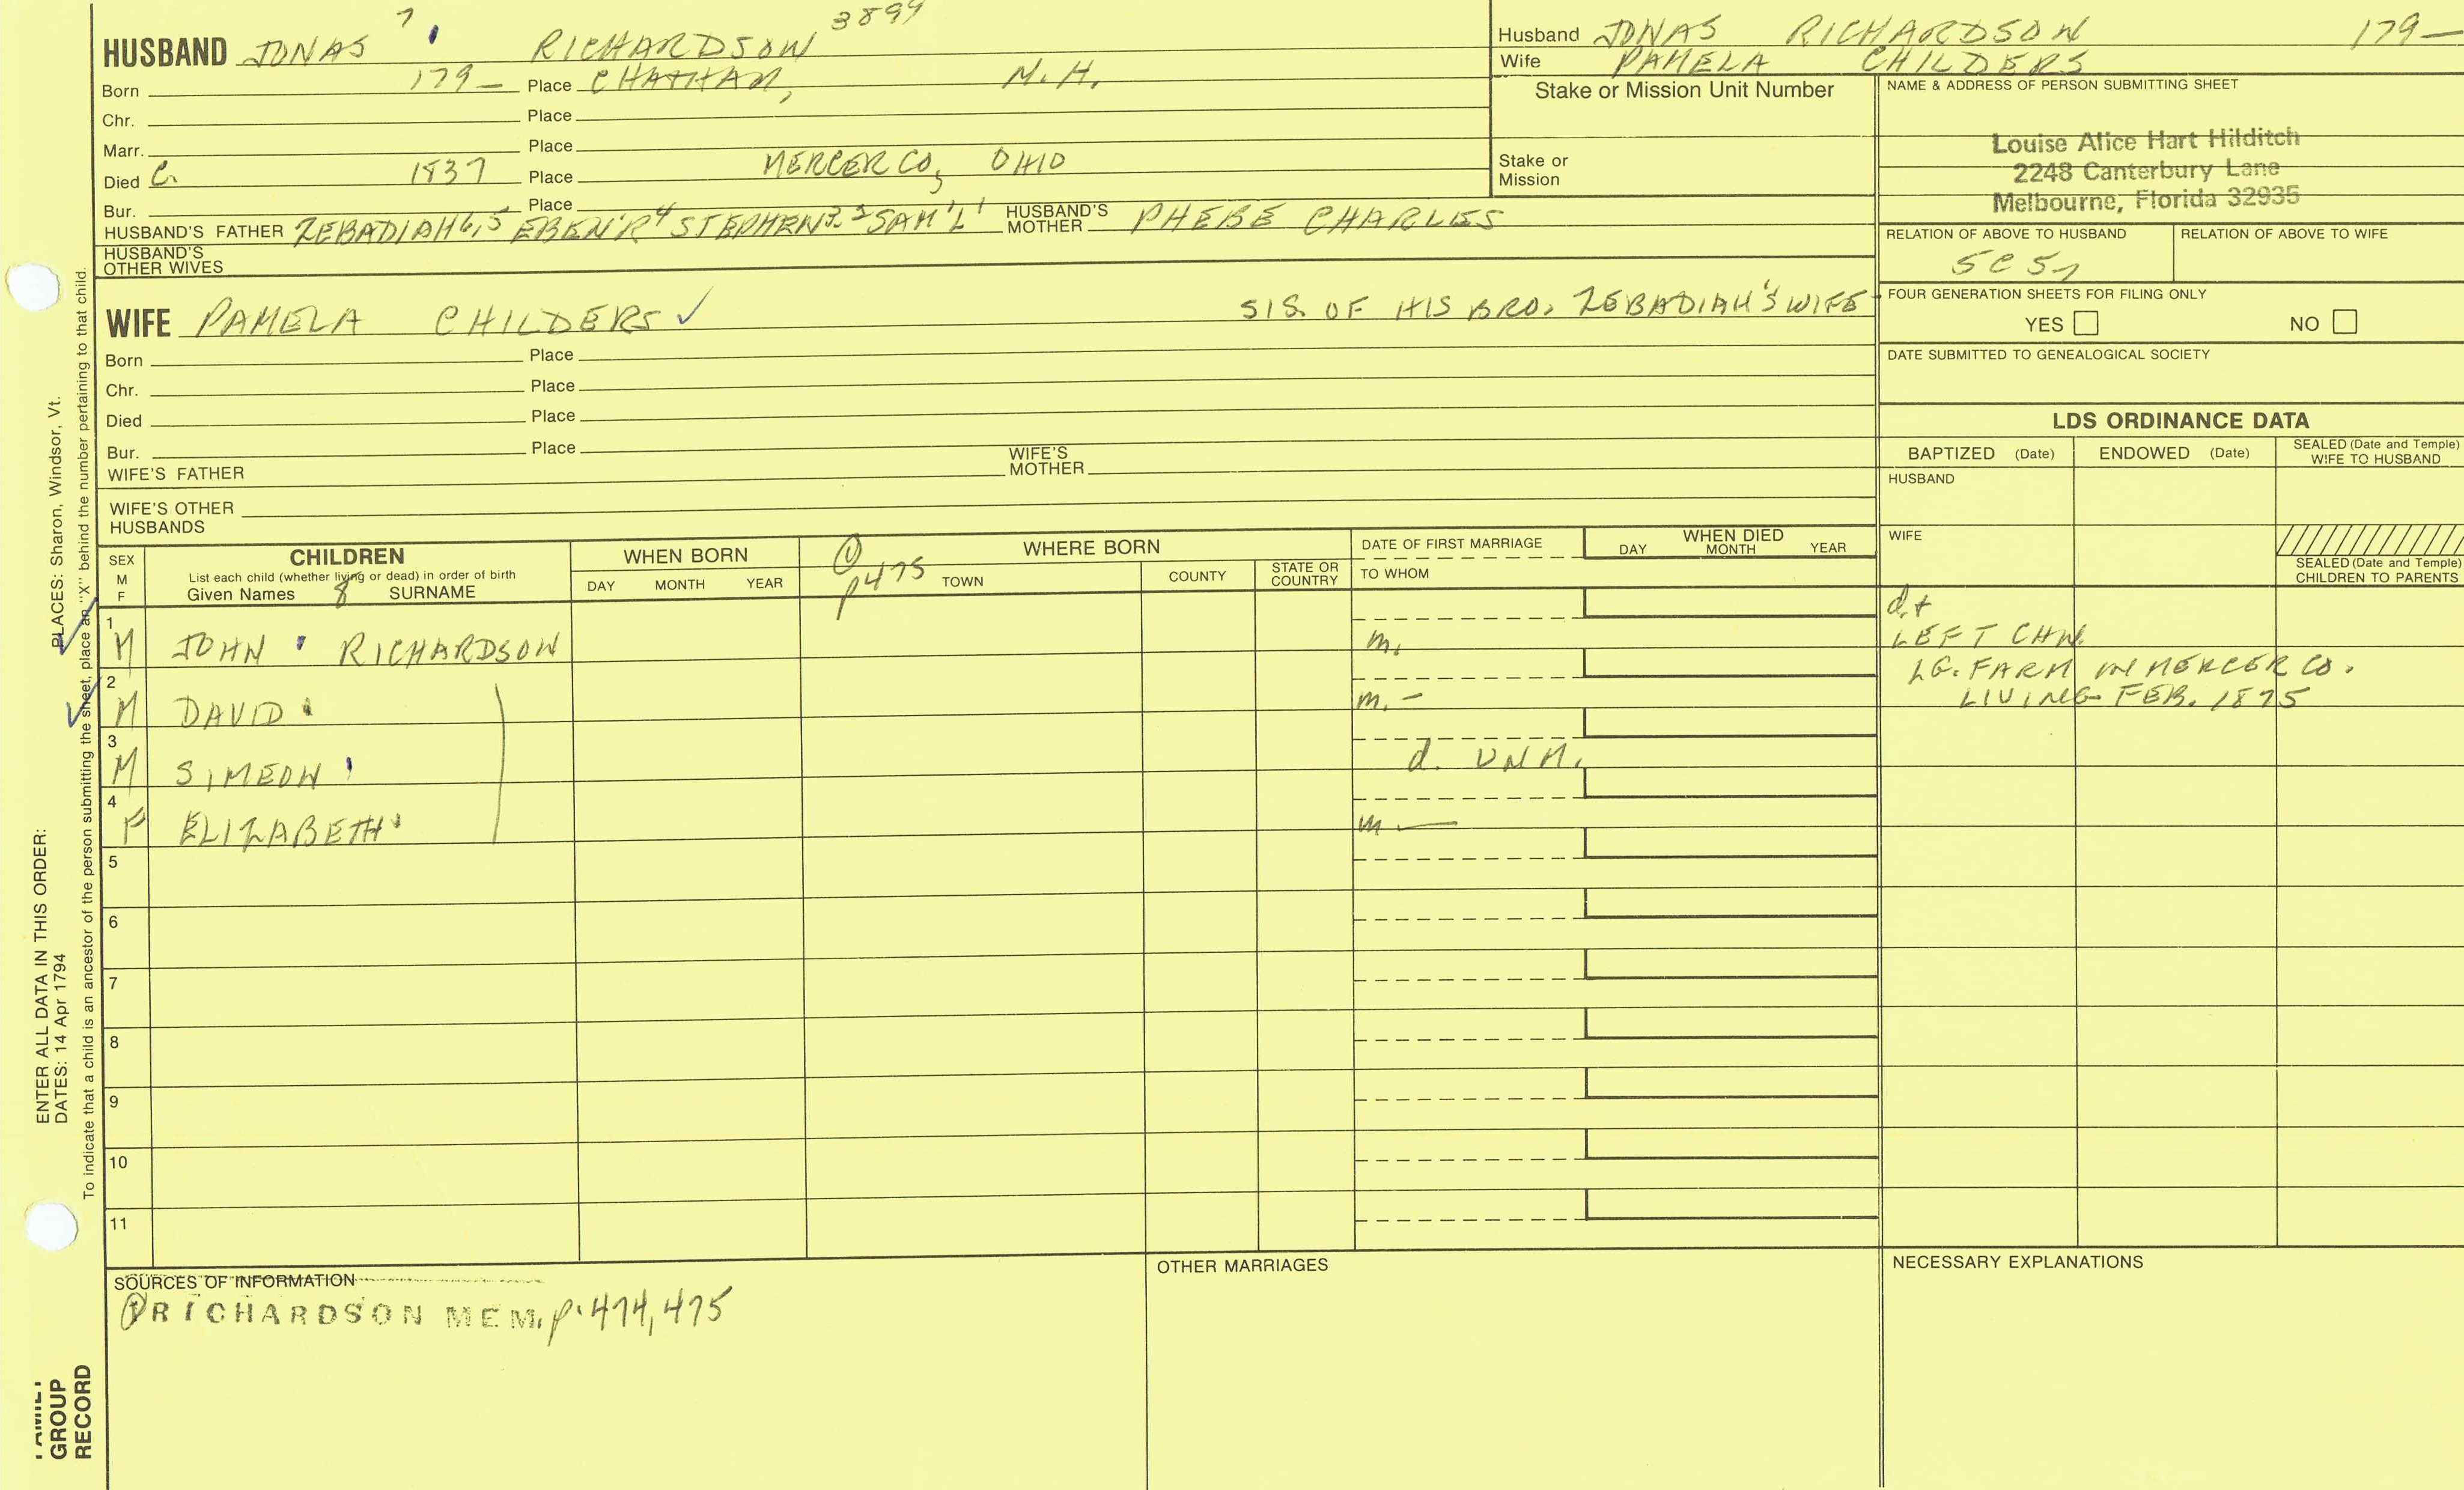 7 3899
HUSBAND JONAS RICHARDSON
Born 179— Place CHATHAM, N.H.
Chr. Place
Marr. Place
Died C. 1837 Place MERCER CO, OHIO
Bur. Place
HUSBAND'S FATHER ZEBADIAH6,5 EBEN'R4 STEPHEN3,2 SAM'L1 HUSBAND'S MOTHER PHEBE CHARLES
HUSBAND'S OTHER WIVES
WIFE PAMELA CHILDERS ✓ SIS. OF HIS BRO. ZEBADIAH'S WIFE
Born Place
Chr. Place
Died Place
Bur. Place
WIFE'S FATHER WIFE'S MOTHER
WIFE'S OTHER HUSBANDS
Husband JONAS RICHARDSON 179—
Wife PAMELA CHILDERS
Stake or Mission Unit Number
Stake or Mission
NAME & ADDRESS OF PERSON SUBMITTING SHEET
Louise Alice Hart Hilditch
2248 Canterbury Lane
Melbourne, Florida 32935
RELATION OF ABOVE TO HUSBAND RELATION OF ABOVE TO WIFE
5C5r
FOUR GENERATION SHEETS FOR FILING ONLY
YES NO
DATE SUBMITTED TO GENEALOGICAL SOCIETY
LDS ORDINANCE DATA
BAPTIZED (Date) ENDOWED (Date) SEALED (Date and Temple) WIFE TO HUSBAND
HUSBAND
WIFE
SEALED (Date and Temple) CHILDREN TO PARENTS
SEX M F
CHILDREN
List each child (whether living or dead) in order of birth
Given Names 8 SURNAME
WHEN BORN
DAY MONTH YEAR
WHERE BORN
① p475 TOWN COUNTY STATE OR COUNTRY
DATE OF FIRST MARRIAGE
TO WHOM
WHEN DIED
DAY MONTH YEAR
1 M JOHN RICHARDSON m. LEFT CHN.
2 M DAVID m. — LG. FARM IN MERCER CO.
LIVING FEB. 1875
3 M SIMEON d. UNM.
4 F ELIZABETH m —
5
6
7
8
9
10
11
SOURCES OF INFORMATION
① RICHARDSON MEM. p. 474, 475
OTHER MARRIAGES
NECESSARY EXPLANATIONS
ENTER ALL DATA IN THIS ORDER:
DATES: 14 Apr 1794 PLACES: Sharon, Windsor, Vt.
To indicate that a child is an ancestor of the person submitting the sheet, place an "X" behind the number pertaining to that child.
FAMILY
GROUP
RECORD